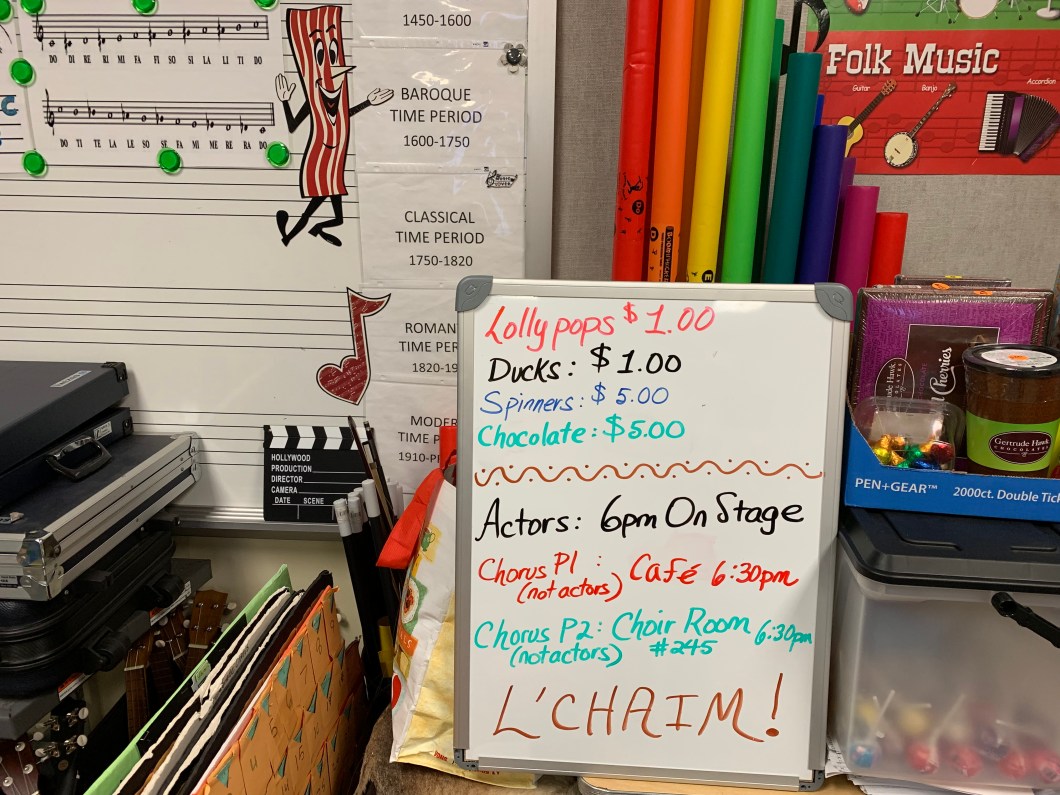 DO DI RE RI MI FA FI SO SI LA LI TI DO
DO TI TE LA LE SO SE FA MI ME RE RA DO
1450-1600
BAROQUE
TIME PERIOD
1600-1750
CLASSICAL
TIME PERIOD
1750-1820
ROMAN
TIME PER
1820-19
MODER
TIME P
1910-P
HOLLYWOOD
PRODUCTION
DIRECTOR
CAMERA
DATE SCENE
Folk Music
Guitar Banjo Accordion
Lollypops $1.00
Ducks: $1.00
Spinners: $5.00
Chocolate: $5.00
Actors: 6pm On Stage
Chorus P1 : Café 6:30pm
(not actors)
Chorus P2: Choir Room 6:30pm
(not actors) #245
L'CHAIM!
Cherries
Gertrude Hawk
CHOCOLATES
PEN+GEAR™ 2000ct. Double Tic